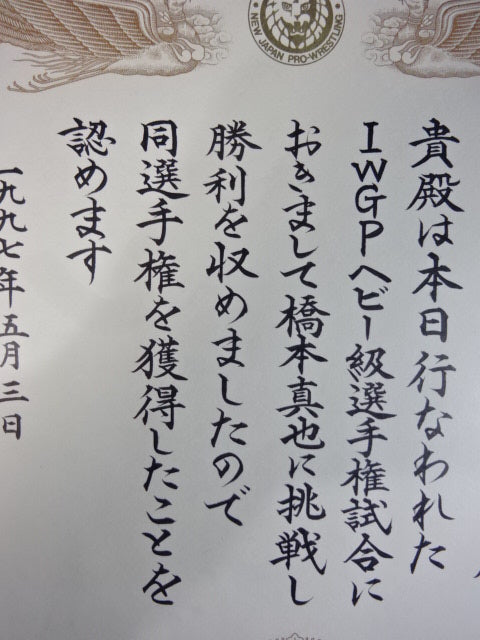 NEW JAPAN PRO-WRESTLING
貴殿は本日行なわれた
IWGPヘビー級選手権試合に
おきまして橋本真也に挑戦し
勝利を収めましたので
同選手権を獲得したことを
認めます
一九九七年五月三日